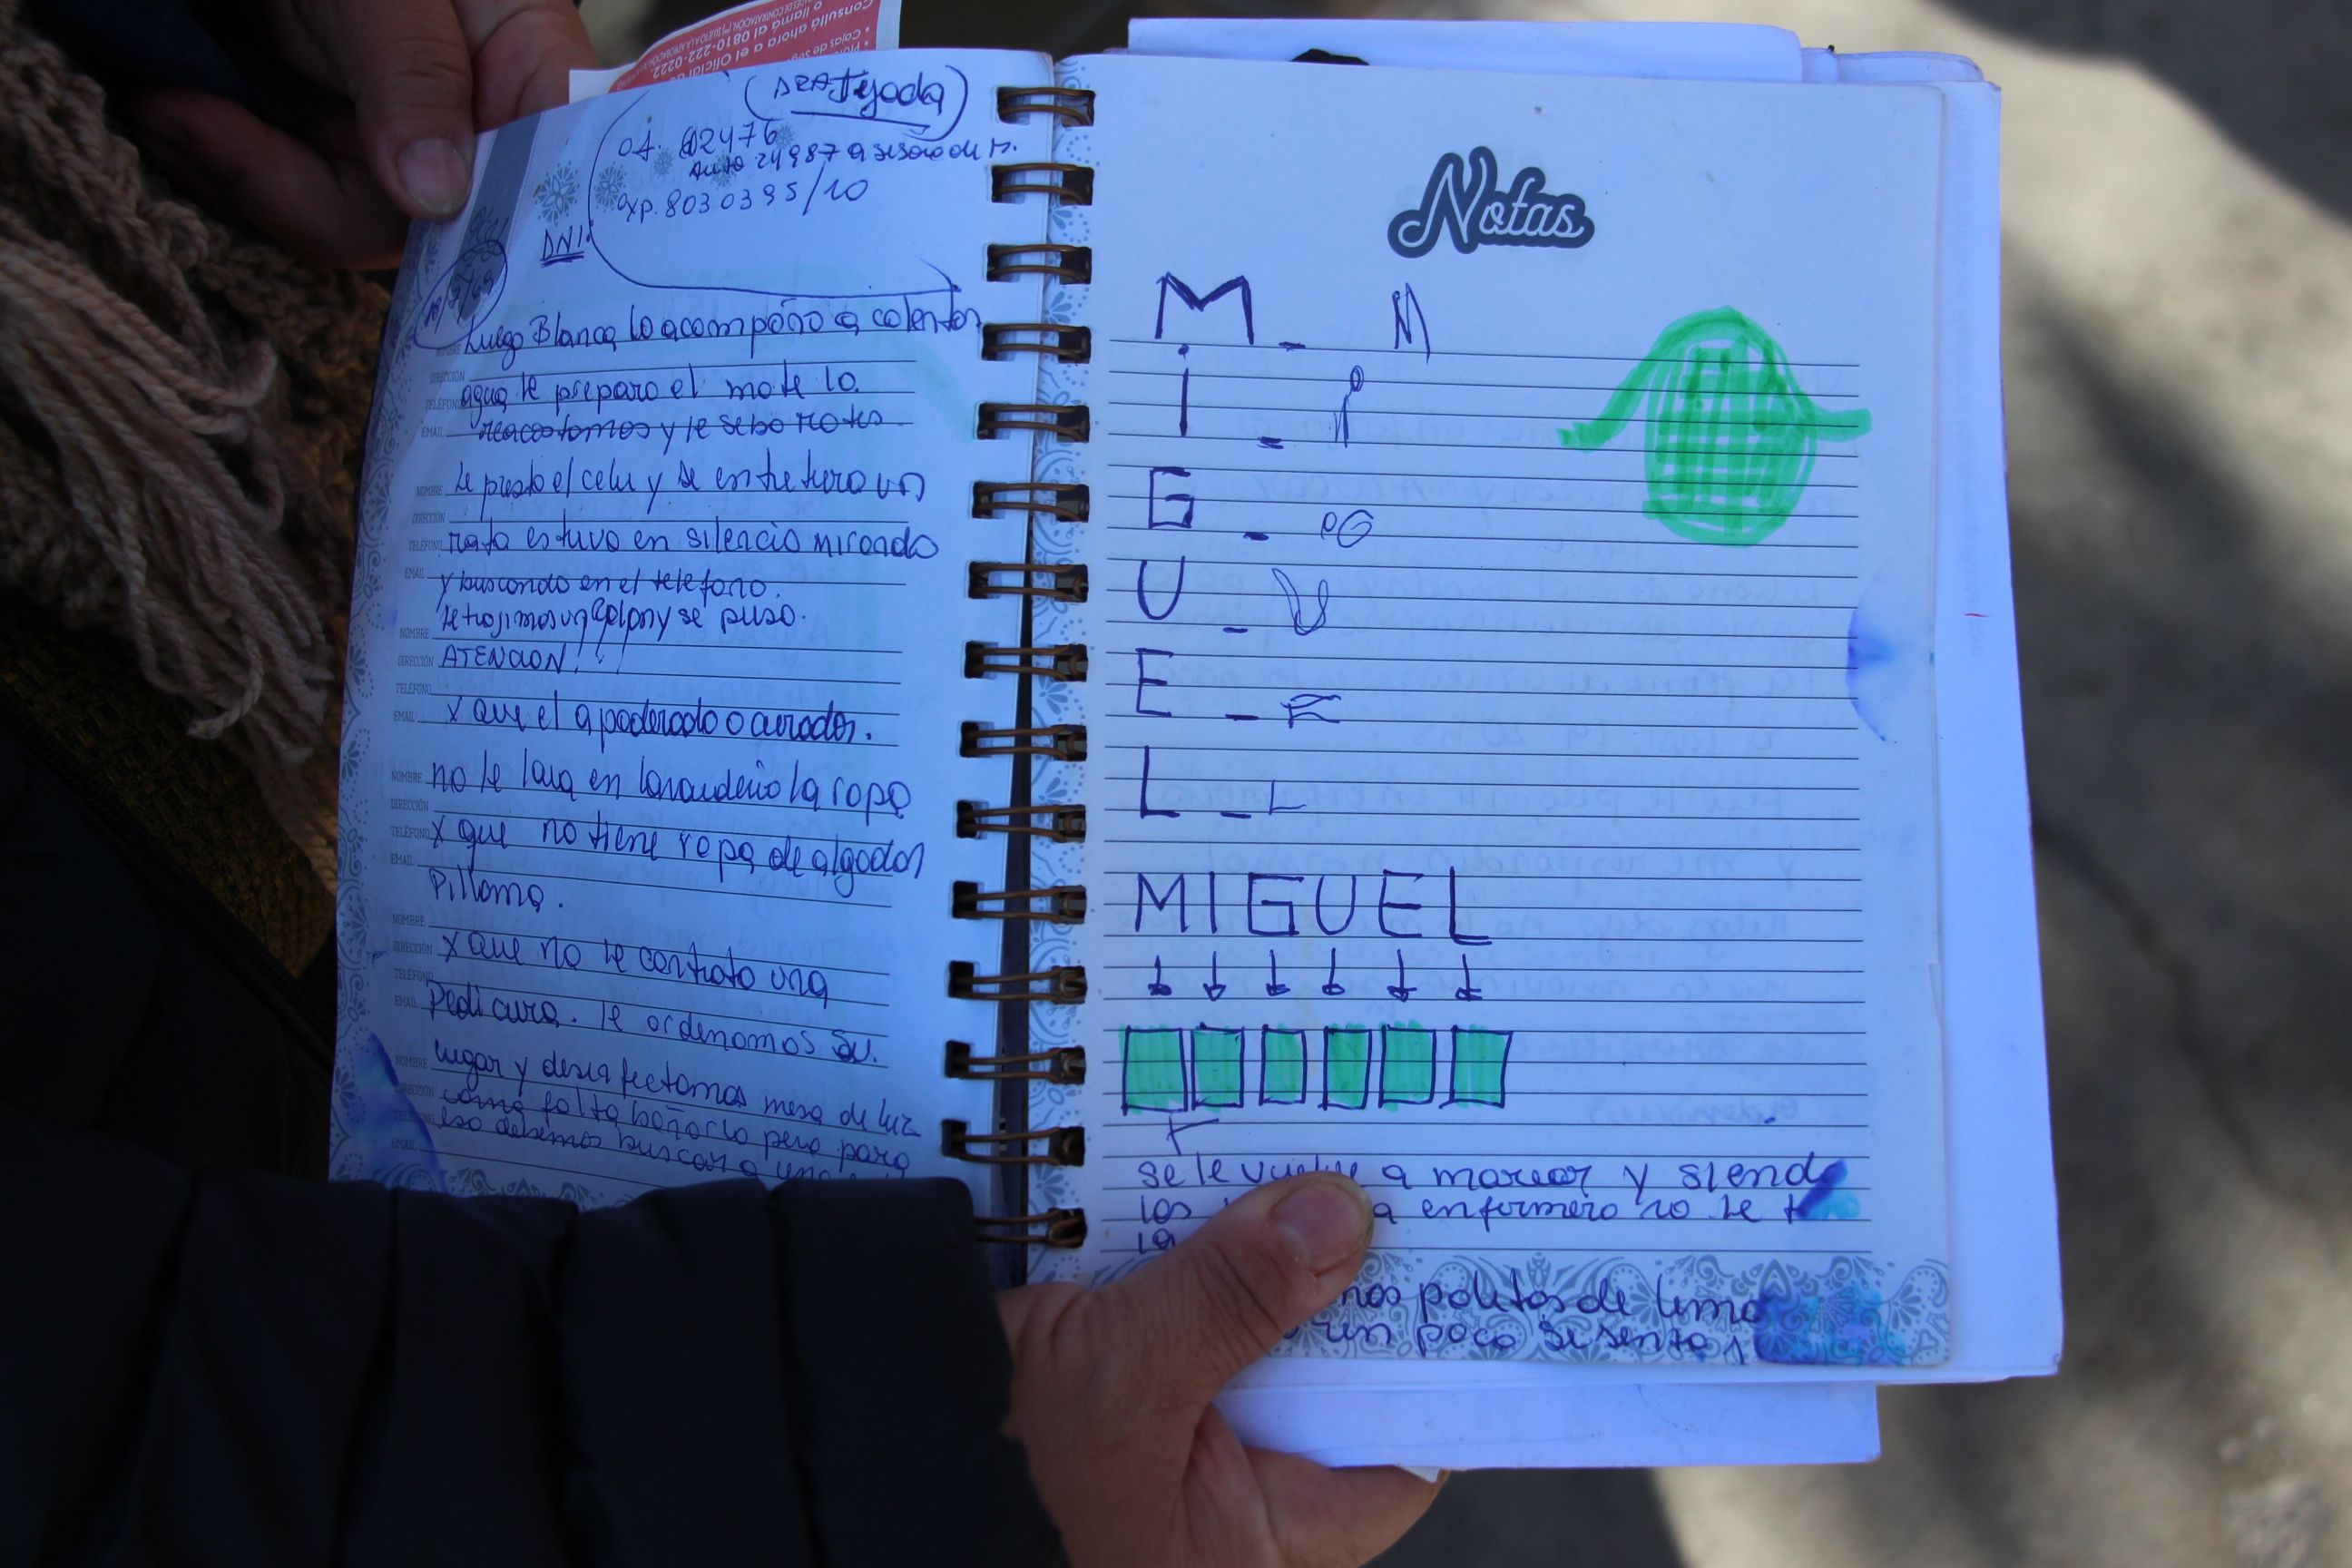 Consultá ahora a el Oficial de
o llamá al 0810-222-0222.
(DRA Tejada)
of. 02476
Auto 24987 asesora de M.
exp. 8030395/10
DNI:
Luego Blanca lo acompoño a calentar
NOMBRE
DIRECCIÓN
agua, le preparo el mate lo
TELÉFONO
EMAIL reacostamos y le sebo mates.
NOMBRE le presto el celu y se entretuvo un
DIRECCIÓN
TELÉFONO rato estuvo en silencio mirando
EMAIL y buscando en el telefono.
le trajimos un y se puso.
NOMBRE
DIRECCIÓN ATENCION!!!
TELÉFONO
EMAIL x que el apoderado o curador.
NOMBRE no le lava en lavanderia la ropa
DIRECCIÓN
TELÉFONO x que no tiene ropa de algodon
EMAIL
Pillama.
NOMBRE
DIRECCIÓN x que no le contrato una
TELÉFONO
EMAIL Pedicura. le ordenamos su.
NOMBRE lugar y desinfectamos mesa de luz
DIRECCIÓN como falta bañarlo pero para
TELÉFONO eso debemos buscar a una
EMAIL
Notas
M _ M
i _ i
G _ G
U _ U
E _ E
L _ L
MIGUEL
se le vuelve a marear y siendo
las a enfermero no le
la
nos poletos de
un poco se sento y